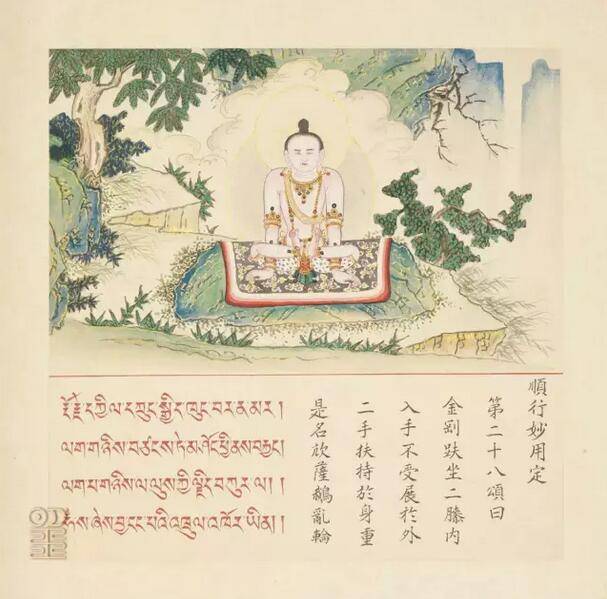 順行妙用定
第二十八頌曰
金剛趺坐二膝內
入手不受展於外
二手扶持於身重
是名薩鵝亂輪
རྡོ་རྗེ་དཀྱིལ་དཀྲུང་སྒྱིད་ཁུང་བར་ །
ལག་གཉིས་བཙངས་ཏེ་མ་ཤོང་ཕྱི་ནས་བརྐྱང།
ལག་པ་གཉིས་ལ་ལུས་ཀྱི་ལྗིད་བཀུར་ལ། །
ཞེས་བྱ་ངང་པའི་འཁྲུལ་འཁོར་ཡིན། །